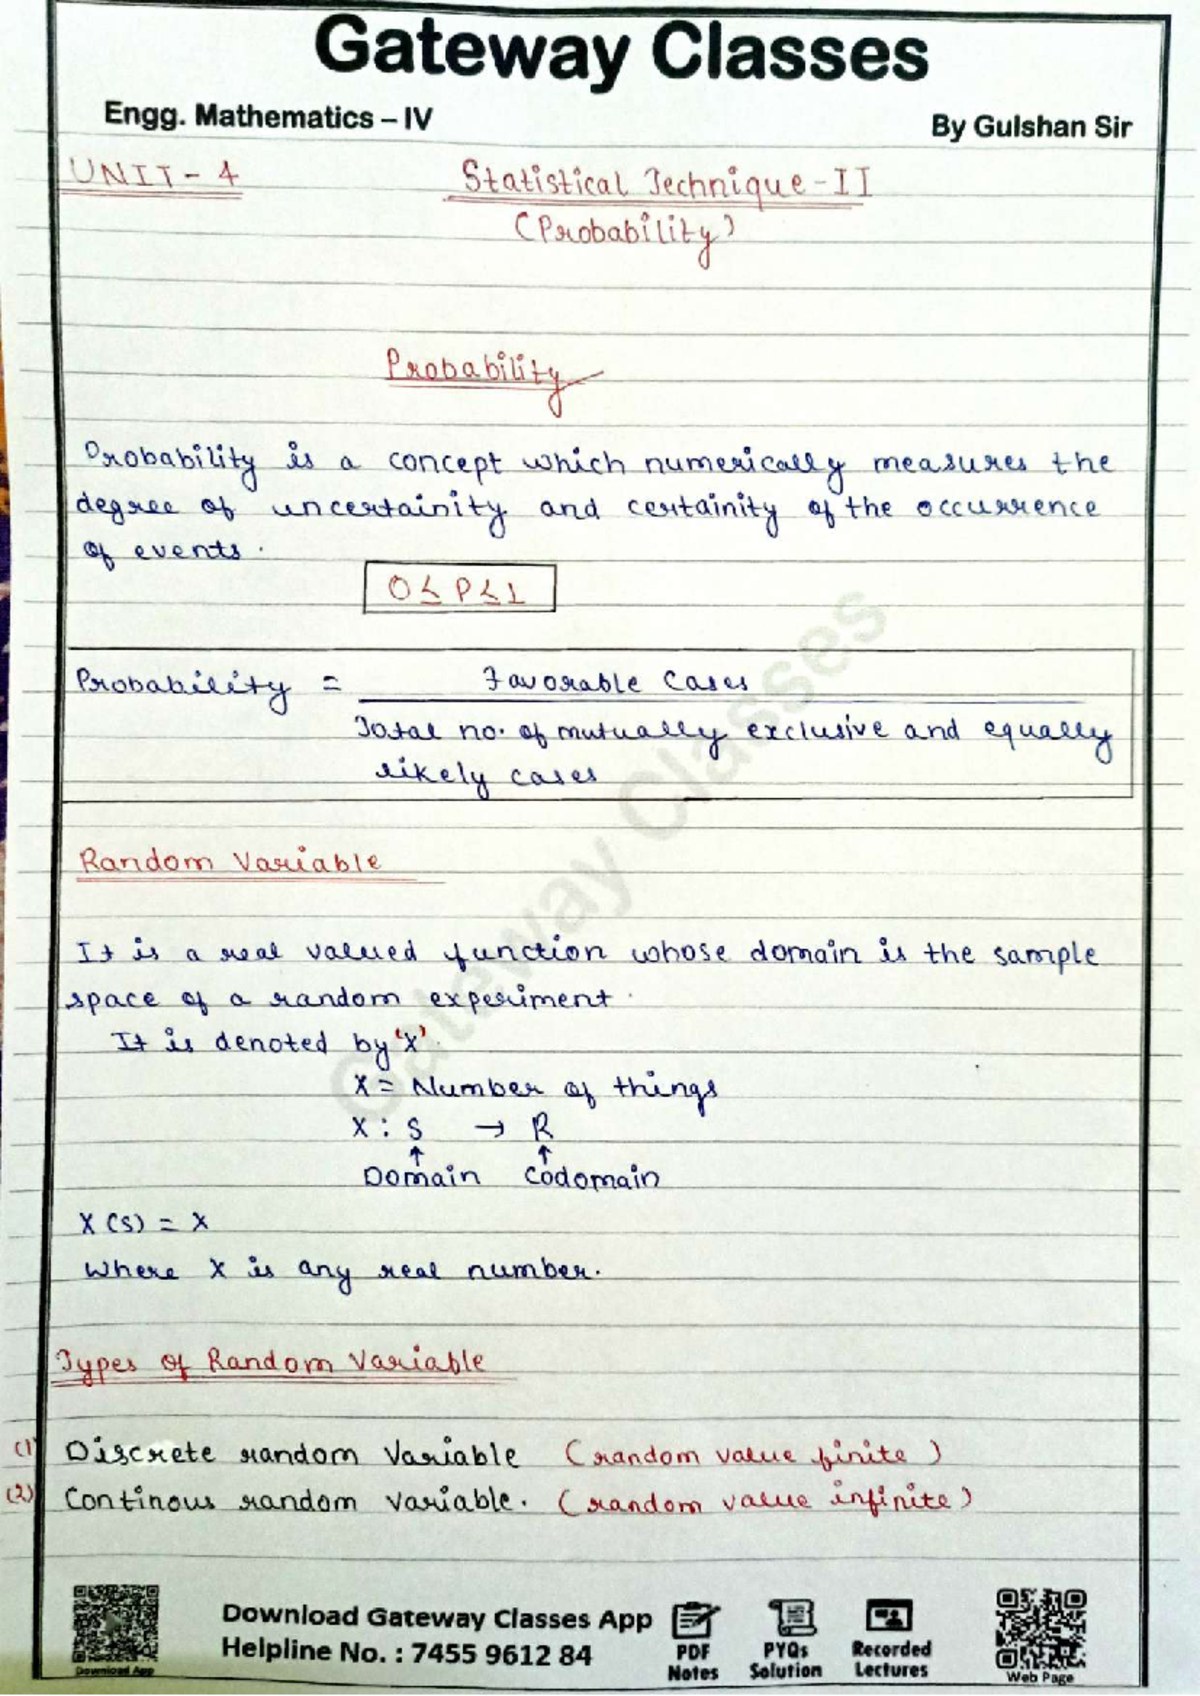 Gateway Classes
Engg. Mathematics – IV
By Gulshan Sir
UNIT - 4
Statistical Technique - II
(Probability)
Probability
Probability is a concept which numerically measures the
degree of uncertainity and certainity of the occurrence
of events.
0 ≤ P ≤ 1
Probability = Favorable Cases
Total no. of mutually exclusive and equally
likely cases
Random Variable
It is a real valued function whose domain is the sample
space of a random experiment.
It is denoted by 'X'.
X = Number of things
X : S → R
↑ ↑
Domain Codomain
X (S) = x
where x is any real number.
Types of Random Variable
(1) Discrete random variable (random value finite)
(2) Continous random variable. (random value infinite)
Gateway Classes
Download Gateway Classes App
Helpline No. : 7455 9612 84
Download App
PDF
Notes
PYQs
Solution
Recorded
Lectures
Web Page